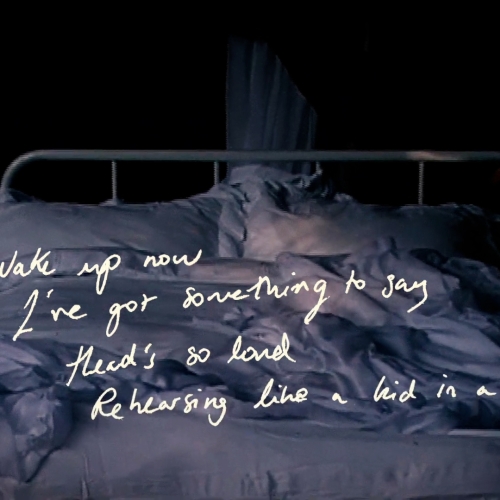 Wake up now
I've got something to say
Head's so loud
Rehearsing like a kid in a